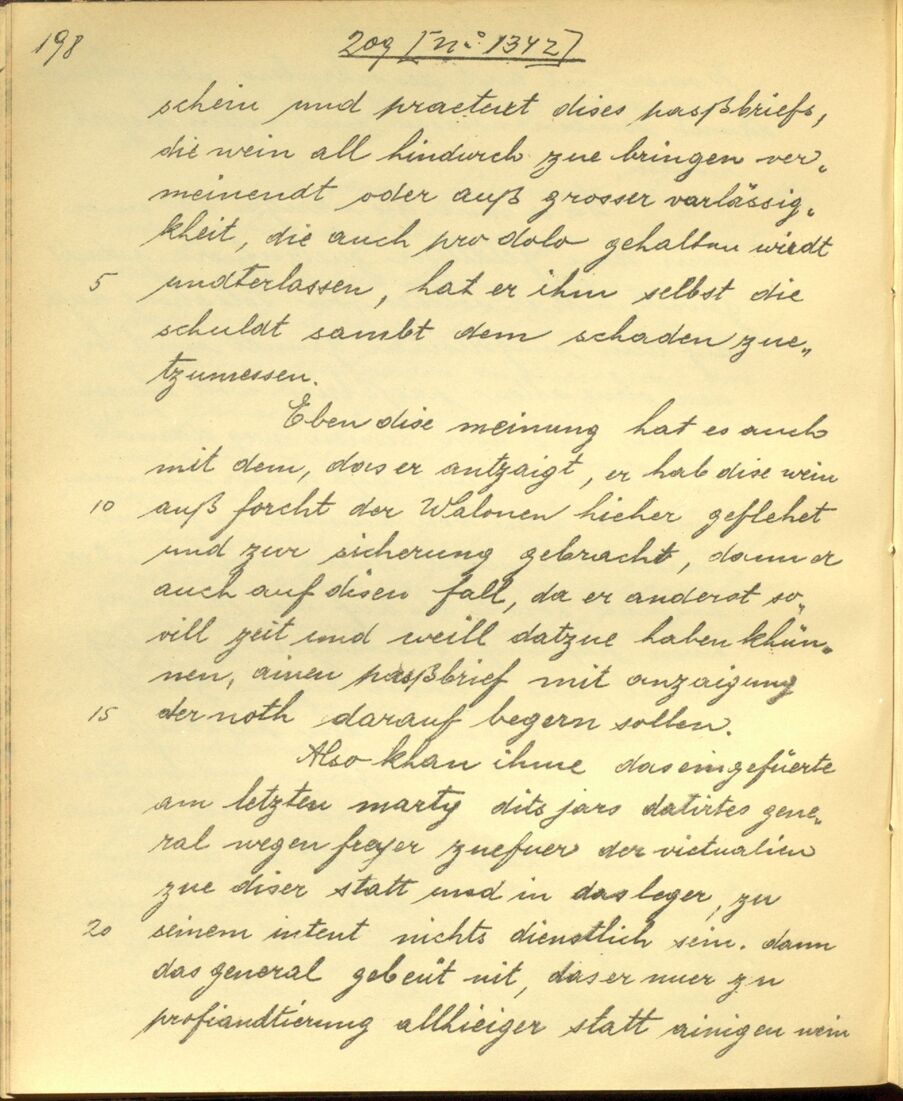 198
209 [No. 1342]
schein und praetext dises paßbriefs,
die wein all hindurch zue bringen ver„
meinendt oder auß grosser varlässig„
kheit, die auch pro dolo gehalten wirdt
5 undterlassen, hat er ihm selbst die
schuldt sambt dem schaden zue„
tzumessen.
Eben dise meinung hat es auch
mit dem, das er antzaigt, er hab dise wein
10 auß forcht der Walonen hieher geflehet
und zur sicherung gebracht, dann er
auch auf disen fall, da er anderst so„
vill zeit und weill datzue haben khün„
nen, ainen paßbrief mit anzaigung
15 der noth darauf begern sollen.
Also khan ihme das eingefüerte
am letzten marty dits jars datirtes gene„
ral wegen freyer zuefuer der victualien
zue diser statt und in das leger, zu
20 seinem intent nichts dienstlich sein. dann
das general gebeüt nit, das er nuer zu
profiandtierung allhieiger statt ainigen wein